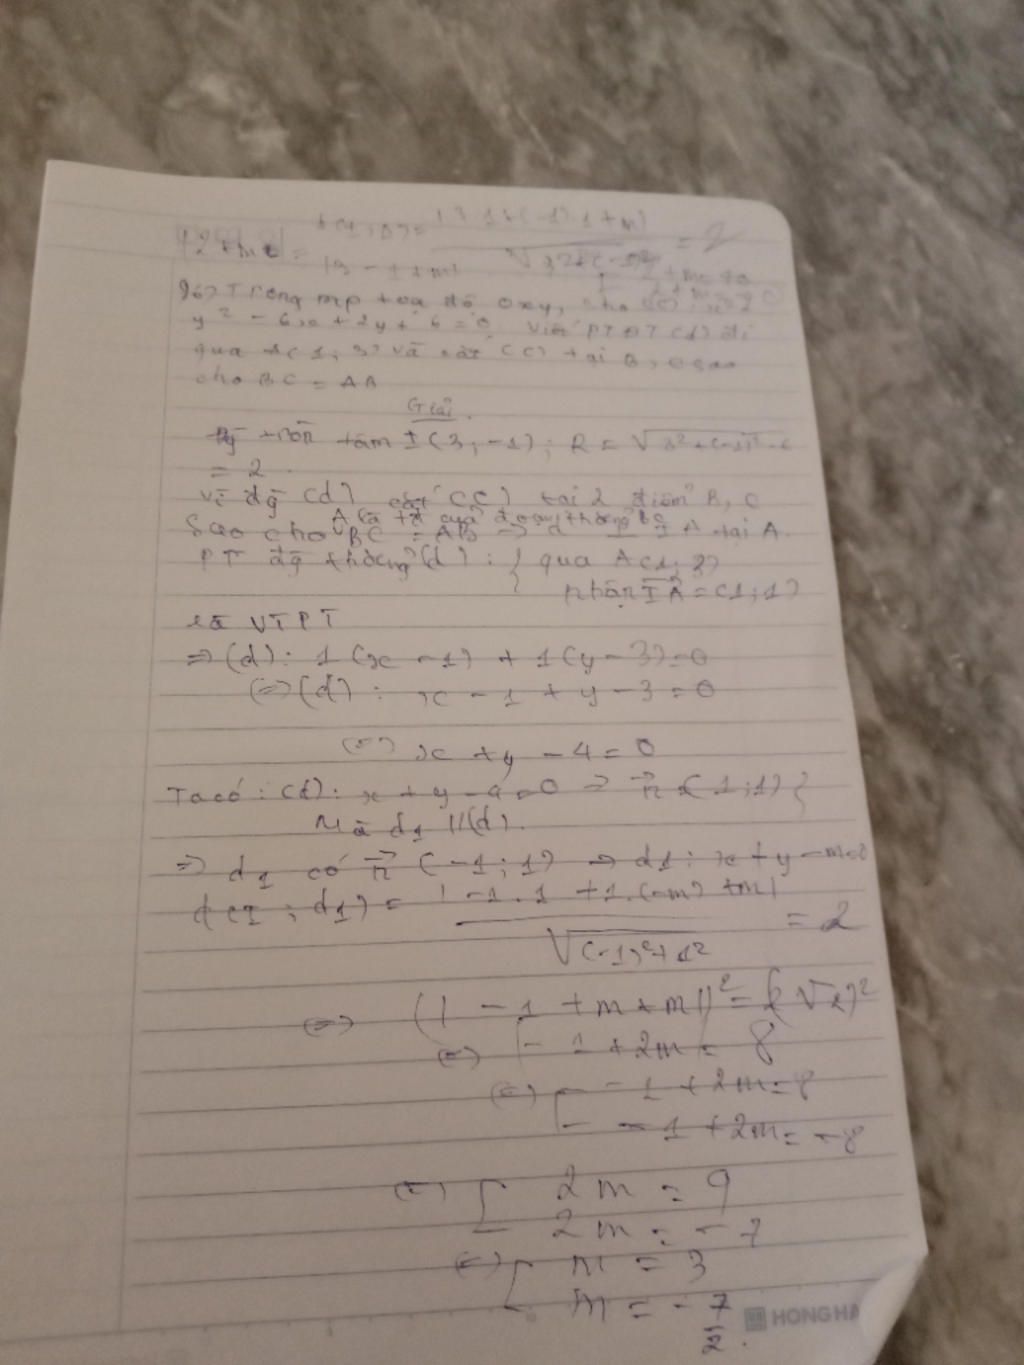 d(I, Δ) = |3.1+(-1).1+m| / √3²+(-1)² = 2
|2+m| =
|3-1+m|
96) Trong mp toạ độ oxy, cho (C):
y² - 6x + 2y + 6 = 0. Viết PT ĐT (d) đi
qua A(1; 3) và cắt (C) tại B, C sao
cho BC = AB
Giải.
tròn tâm I(3; -1); R = √3²+(-1)²-6
= 2
Vì đg (d) cắt (C) tại 2 điểm B, C
A là tđ của đoạn thẳng BC
Sao cho BC = AB => d ⊥ IA tại A.
PT đg thẳng (d): { qua A(1; 3)
nhận IA = (1; 1)
là VTPT
=> (d): 1(x - 1) + 1(y - 3) = 0
(=) (d): x - 1 + y - 3 = 0
(=) x + y - 4 = 0
Ta có: (d): x + y - 4 = 0 => n = (1; 1) }
Mà d1 // (d).
=> d1 có n (-1; 1) => d1: x + y - m = 0
d(I; d1) = |-1.1 + 1.(-m) + m| / √(-1)²+1² = 2
(=) (|-1 + m + m|)² = (2√2)²
(=) |-1 + 2m| = 8
(=) [ -1 + 2m = 8
-1 + 2m = -8
(=) [ 2m = 9
2m = -7
(=) [ m = 3
m = -7/2.
HONG HA